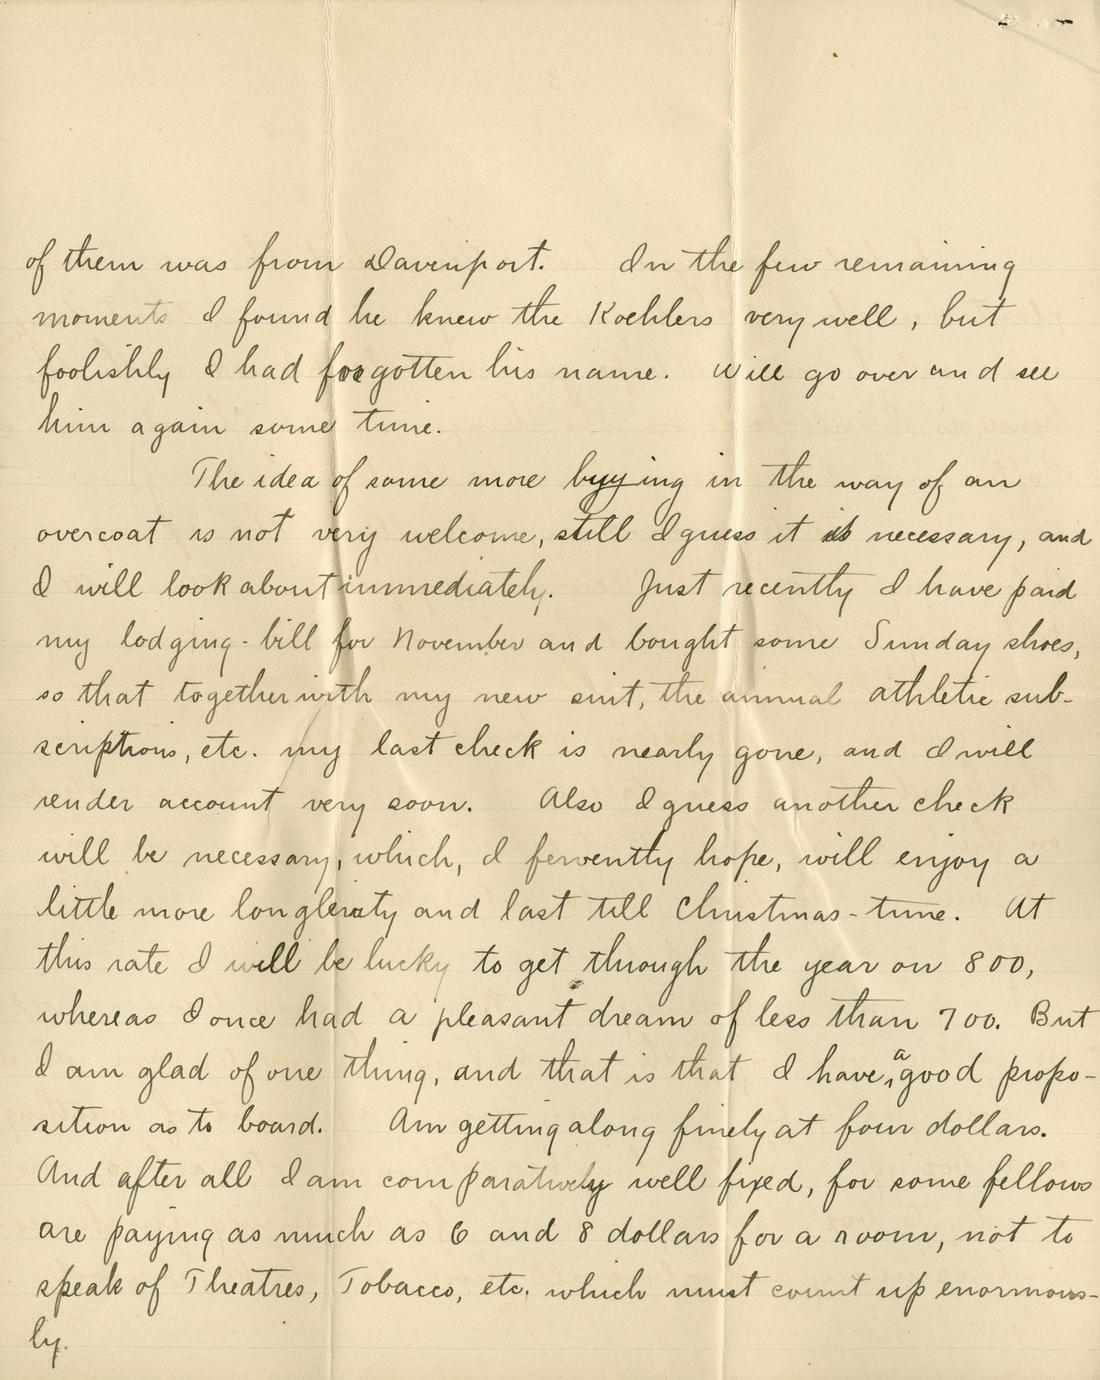 of them was from Davenport. In the few remaining
moments I found he knew the Koehlers very well, but
foolishly I had forgotten his name. Will go over and see
him again some time.
The idea of some more buying in the way of an
overcoat is not very welcome, still I guess it is necessary, and
I will look about immediately. Just recently I have paid
my lodging-bill for November and bought some Sunday shoes,
so that together with my new suit, the annual athletic sub-
scriptions, etc. my last check is nearly gone, and I will
render account very soon. Also I guess another check
will be necessary, which, I fervently hope, will enjoy a
little more and last till Christmas-time. At
this rate I will be lucky to get through the year on 800,
whereas I once had a pleasant dream of less than 700. But
I am glad of one thing, and that is that I have a good propo-
sition as to board. Am getting along finely at four dollars.
And after all I am comparatively well fixed, for some fellows
are paying as much as 6 and 8 dollars for a room, not to
speak of Theatres, Tobacco, etc. which must count up enormous-
ly.